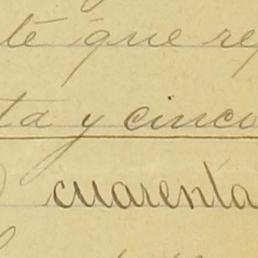 té que rep
ta y cinco
cuarenta